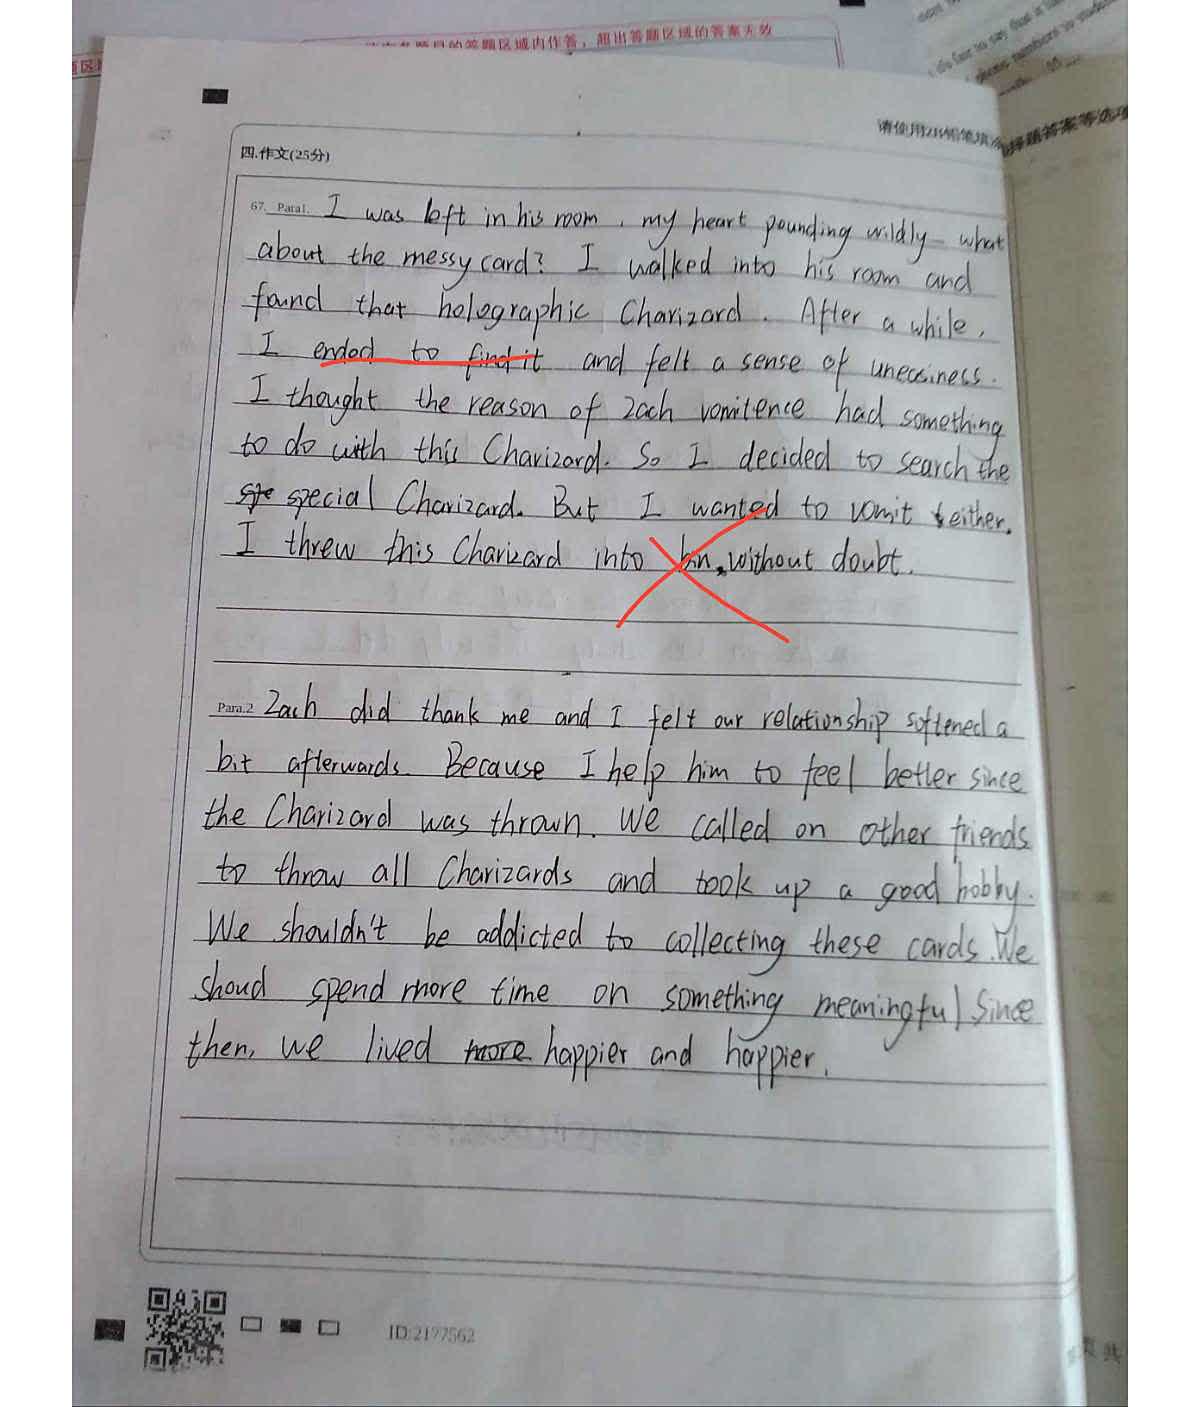 答题区域内作答，超出答题区域的答案无效
请使用2B铅笔填
择题答案等选项
四.作文(25分)
67. Para1. I was left in his room , my heart pounding wildly - what
about the messy card? I walked into his room and
found that holographic Charizard . After a while,
I ended to find it and felt a sense of uneasiness.
I thought the reason of Zach vomitence had something
to do with this Charizard. So I decided to search the
spe special Charizard. But I wanted to vomit either.
I threw this Charizard into bin, without doubt.
Para.2 Zach did thank me and I felt our relationship softened a
bit afterwards. Because I help him to feel better since
the Charizard was thrown. We called on other friends
to throw all Charizards and took up a good hobby.
We shouldn't be addicted to collecting these cards. We
shoud spend more time on something meaningful Since
then, we lived more happier and happier.
ID:2197562